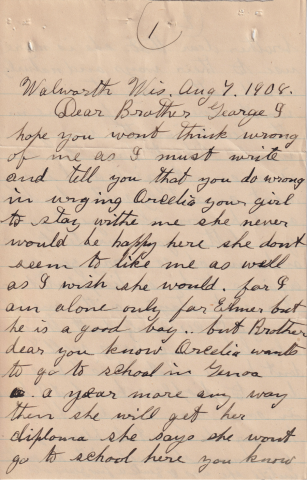 1
Walworth Wis. Aug 7. 1908.
Dear Brother George I
hope you wont think wrong
of me as I must write
and tell you that you do wrong
in urging Orcelia your girl
to stay withe me she never
would be happy here she dont
seem to like me as well
as I wish she would. for I
am alone only for Elmer but
he is a good boy.. but Brother
dear you know Orcelia wants
to go to school in Genoa
a year more any way
then she will get her
diploma she says she wont
go to school here you know